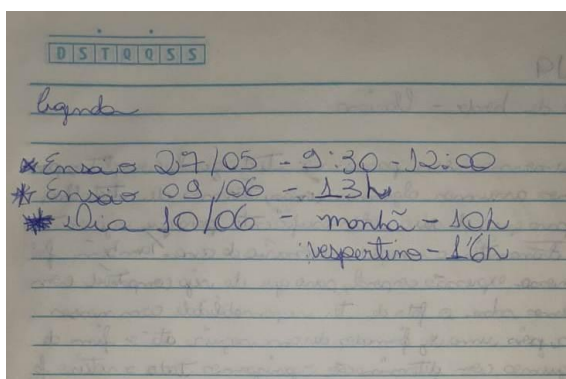 D S T Q Q S S
Legenda
* Ensaio 27/05 - 9:30 - 12:00
* Ensaio 09/06 - 13h
* Dia 10/06 - manhã - 10h
vespertino - 16h